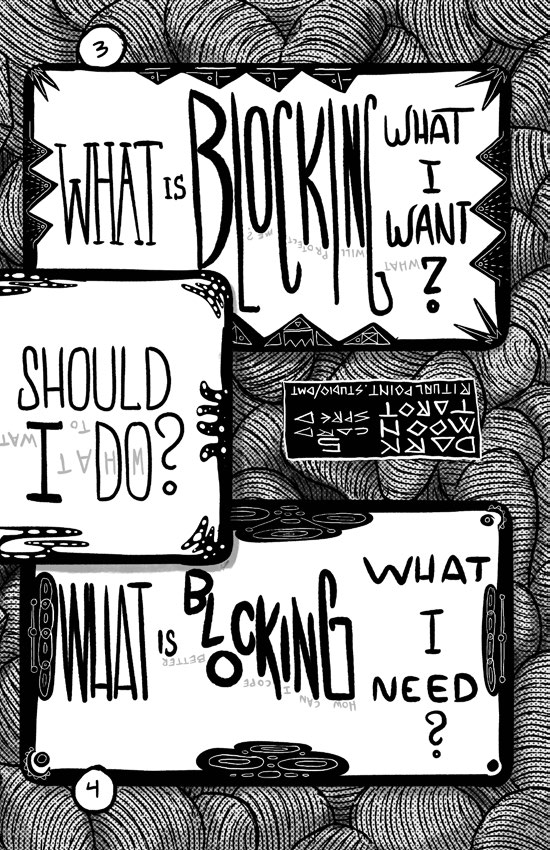 3
WHAT IS BLOCKING WHAT
I
WANT
?
WHAT WILL PROTECT ME?
SHOULD
I DO?
WHAT TO
DARK
MOON
TAROT
5
CARD
SPREAD
RITUALPOINT.STUDIO/DMT
WHAT IS BLOCKING WHAT
I
NEED
?
HOW CAN I COPE BETTER
4